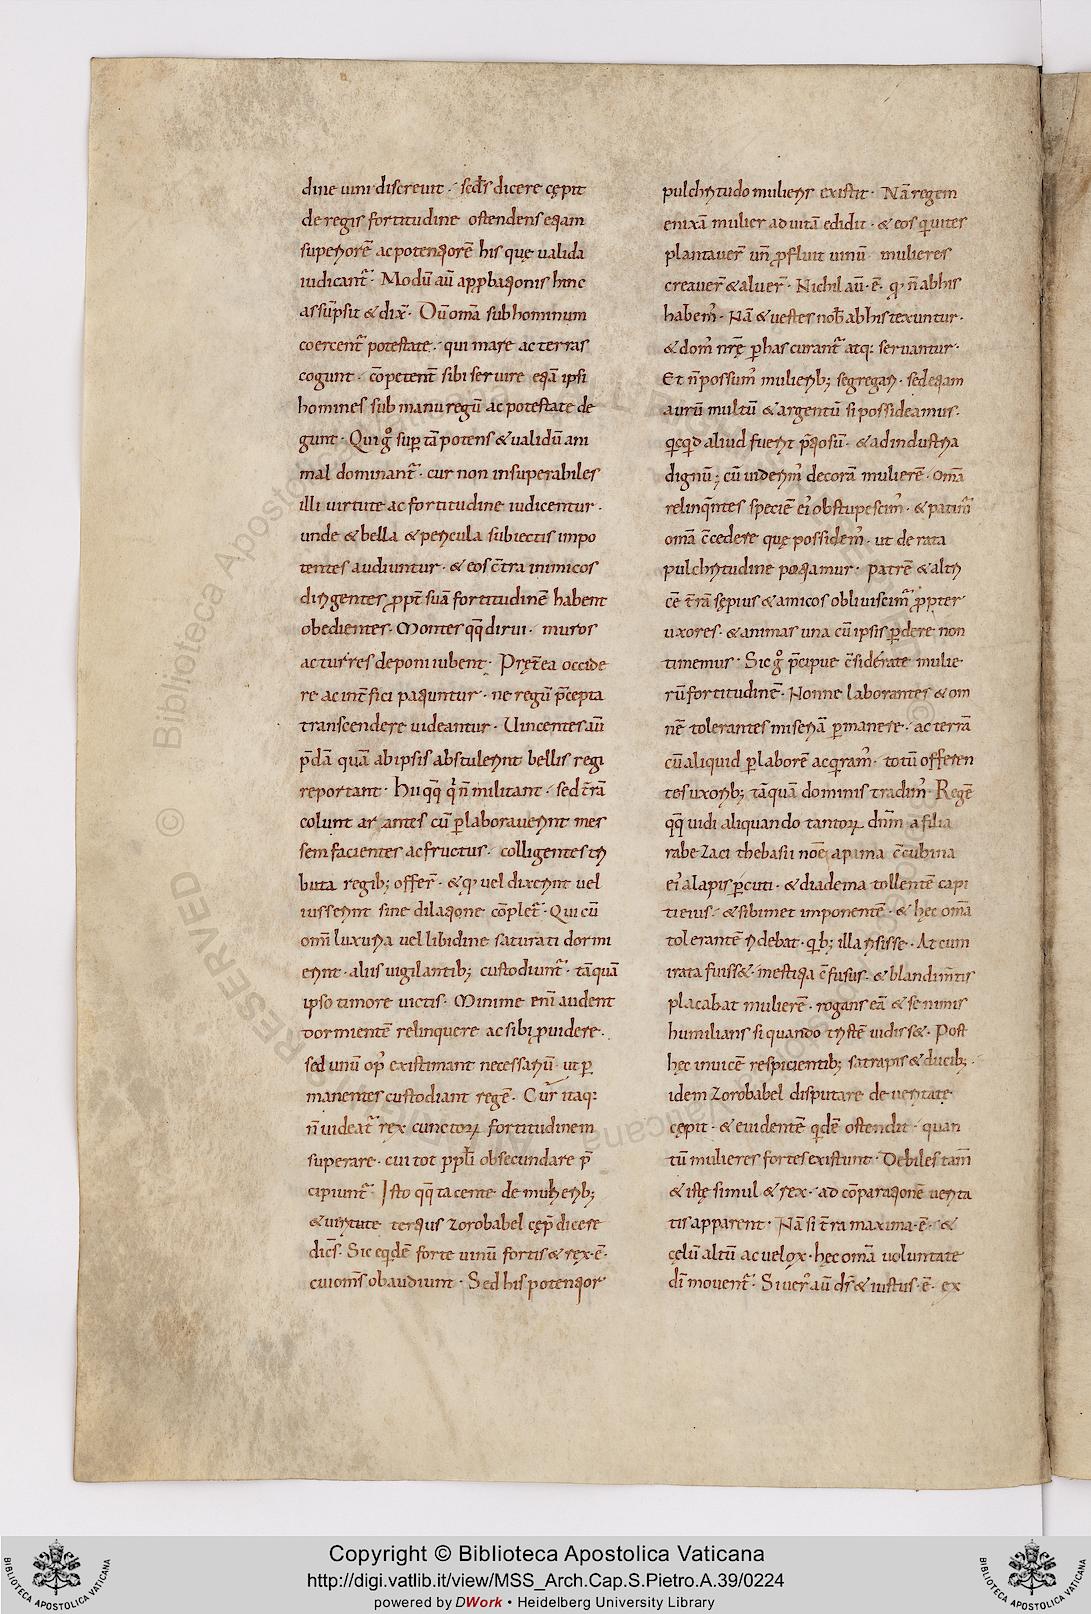 dine uini discreuit· scd̄s dicere cępit
de regis fortitudine ostendens eqam
superiorē ac potentiorē his quę ualida
iudicant᷑· Modū aū app̱bationis hinc
assūpsit & dix̄· Dū om̄a sub hominum
coercent᷑ potestate· qui mare ac terras
cogunt· cōpetent᷑ sibi seruire etiā ipsi
homines sub manu regū ac potestate de
gunt· Qui gͦ sup̱ tā potens & ualidū ani
mal dominant᷑· cur non insuperabiles
illi uirtute ac fortitudine iudicentur·
unde & bella & pericula subiectis impo
nentes audiuntur· & eos c̄tra inimicos
dirigentes p̱pt̄ suā fortitudinē habent
obedientes· Montes qq̄ dirui· muros
ac turres deponi iubent· Pręt̄ea occide
re ac int̄fici patiuntur· ne regū p̄cepta
transcendere uideantur· Uincentes aū
p̄dā quā ab ipsis abstulerint bellis regi
reportant· Hii qq̄ q̇ n̄ militant· sed t̄rā
colunt arantes cū p̱ laborauerint mes
sem facientes ac fructus· colligentes tri
buta regib; offer̄· & qͥ uel dixerint uel
iusserint sine dilatione cōplet᷑· Qui cū
om̄i luxuria uel libidine saturati dormi
erint· aliis uigilantib; custodiunt᷑· tāquā
ipso timore uictis· Minime eni᷑ audent
dormientē relinquere ac sibi p̱uidere·
sed unū op᷒ existimant necessariū· ut p̱
manentes custodiant regē· Cur itaq:
n̄ uideat᷑ rex cunctoꝝ fortitudinem
superare· cui tot pp̱li obsecundare p̄
cipiunt᷑· Isto qq̄ tacente de mulierib;
& uirtute tertius zorobabel cęp̄ dicere
dic̄s· Sic eqdē forte uinū fortis & rex·ē·
cui om̄s obaudiunt· Sed his potentior
pulchritudo mulieris existit· Nā regem
enixā mulier ad uitā edidit· & eos qͥ uites
plantauer̄ un̄ p̱fluit uinū mulieres
creauer̄ & aluer̄· Nichil aū·ē· qͥ n̄ ab his
habem᷒· Nā & uestes nob̄ ab his texuntur·
& dom᷒ nr̄ę p̱ has curant᷑ atq: seruantur·
Et n̄ possum᷒ mulierib; segregari· sed etiam
aurū multū & argentū si possideamus·
qͥcqͥd aliud fuerit p̄tiosū· & ad industria
dignū; cū uiderim᷒ decorā mulierē· om̄a
relinq̄ntes speciē ei᷒ obstupescim᷒· & patim᷑
om̄a c̄cedere quę possidem᷒· ut de rata
pulchritudine potiamur· patrē & altri
cē t̄rā sępius & amicos obliuiscim᷑ p̱pter
uxores· & animas una cū ipsis p̱dere non
timemus· Sic gͦ p̄cipue c̄siderate mulie
rū fortitudinē· Nonne laborantes & om
nē tolerantes miseriā p̱manere· ac terrā
cū aliquid p̱ laborē acqͥram᷒· totū offeren
tes uxorib; tāquā dominis tradim᷒ Regē
qq̄ uidi aliquando tantoꝝ dn̄m a filia
rabezaci thebasii nōe apama c̄cubina
ei᷒ alapis p̱cuti· & diadema tollentē capi
ti eius· & sibimet imponentē· & hec om̄a
tolerantē ridebat· qͥb; illa risisse· At cum
irata fuiss&· mestitia c̄fusus· & blandim̄tis
placabat mulierē· rogans eā & se nimis
humilians si quando tristē uidiss&· Post
hec inuicē respicientib; satrapis & ducib;·
idem zorobabel disputare de ueritate
cępit· & euidentē qͥdē ostendit· quan
tū mulieres fortes existunt· Debiles tam̄
& istę simul & rex· ad cōparationē uerita
tis apparent· Nā si t̄ra maxima·ē· &
cęlū altū ac uelox· hęc om̄a uoluntate
dī mouent᷑· Si uer᷒ aū ds̄ & iustus·ē· ex
Copyright © Biblioteca Apostolica Vaticana
http://digi.vatlib.it/view/MSS_Arch.Cap.S.Pietro.A.39/0224
powered by DWork • Heidelberg University Library